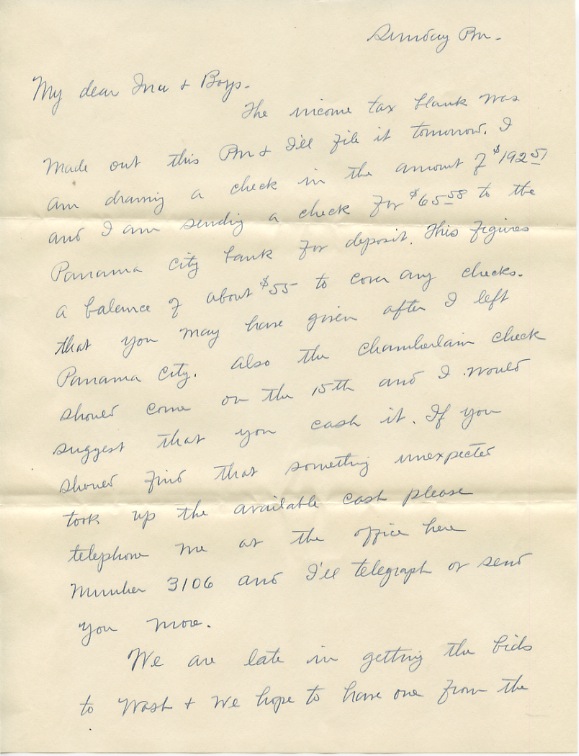 Sunday Pm.
My dear Ina & Boys.
The income tax blank was
made out this Pm & I'll file it tomorrow. I
am drawing a check in the amount of $192.51
and I am sending a check for $65.58 to the
Panama City bank for deposit. This figures
a balance of about $55 to cover any checks.
that you may have given after I left
Panama City. Also the Chamberlain check
should come on the 15th and I would
suggest that you cash it. If you
should find that something unexpected
took up the available cash please
telephone me at the office here
Number 3106 and I'll telegraph or send
you more.
We are late in getting the bids
to Wash & we hope to have one from the